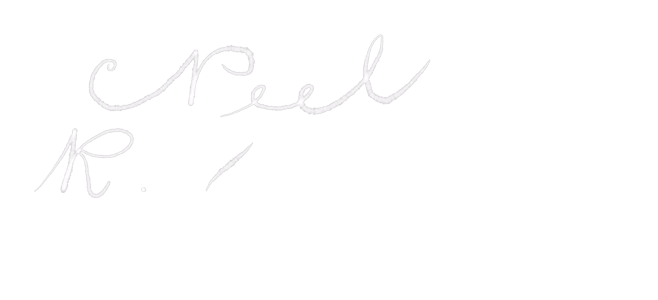 Peel
R. /